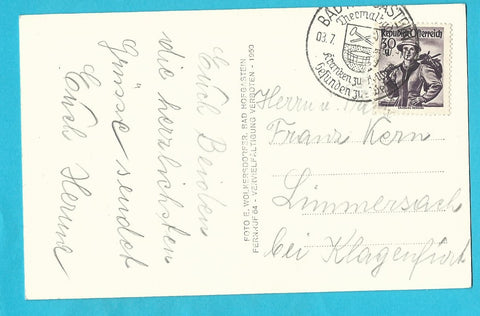 Euch Beiden
die herzlichsten
Grüsse sendet
Euch
FOTO E. WOLKERSDORFER, BAD HOFGASTEIN
FERNRUF 64 - VERVIELFÄLTIGUNG VERBOTEN -
BAD HOFGAST
Thermal
03.7.
Republik Österreich
Herrn u.
Franz Kern
Limmersach
bei Klagenfurt